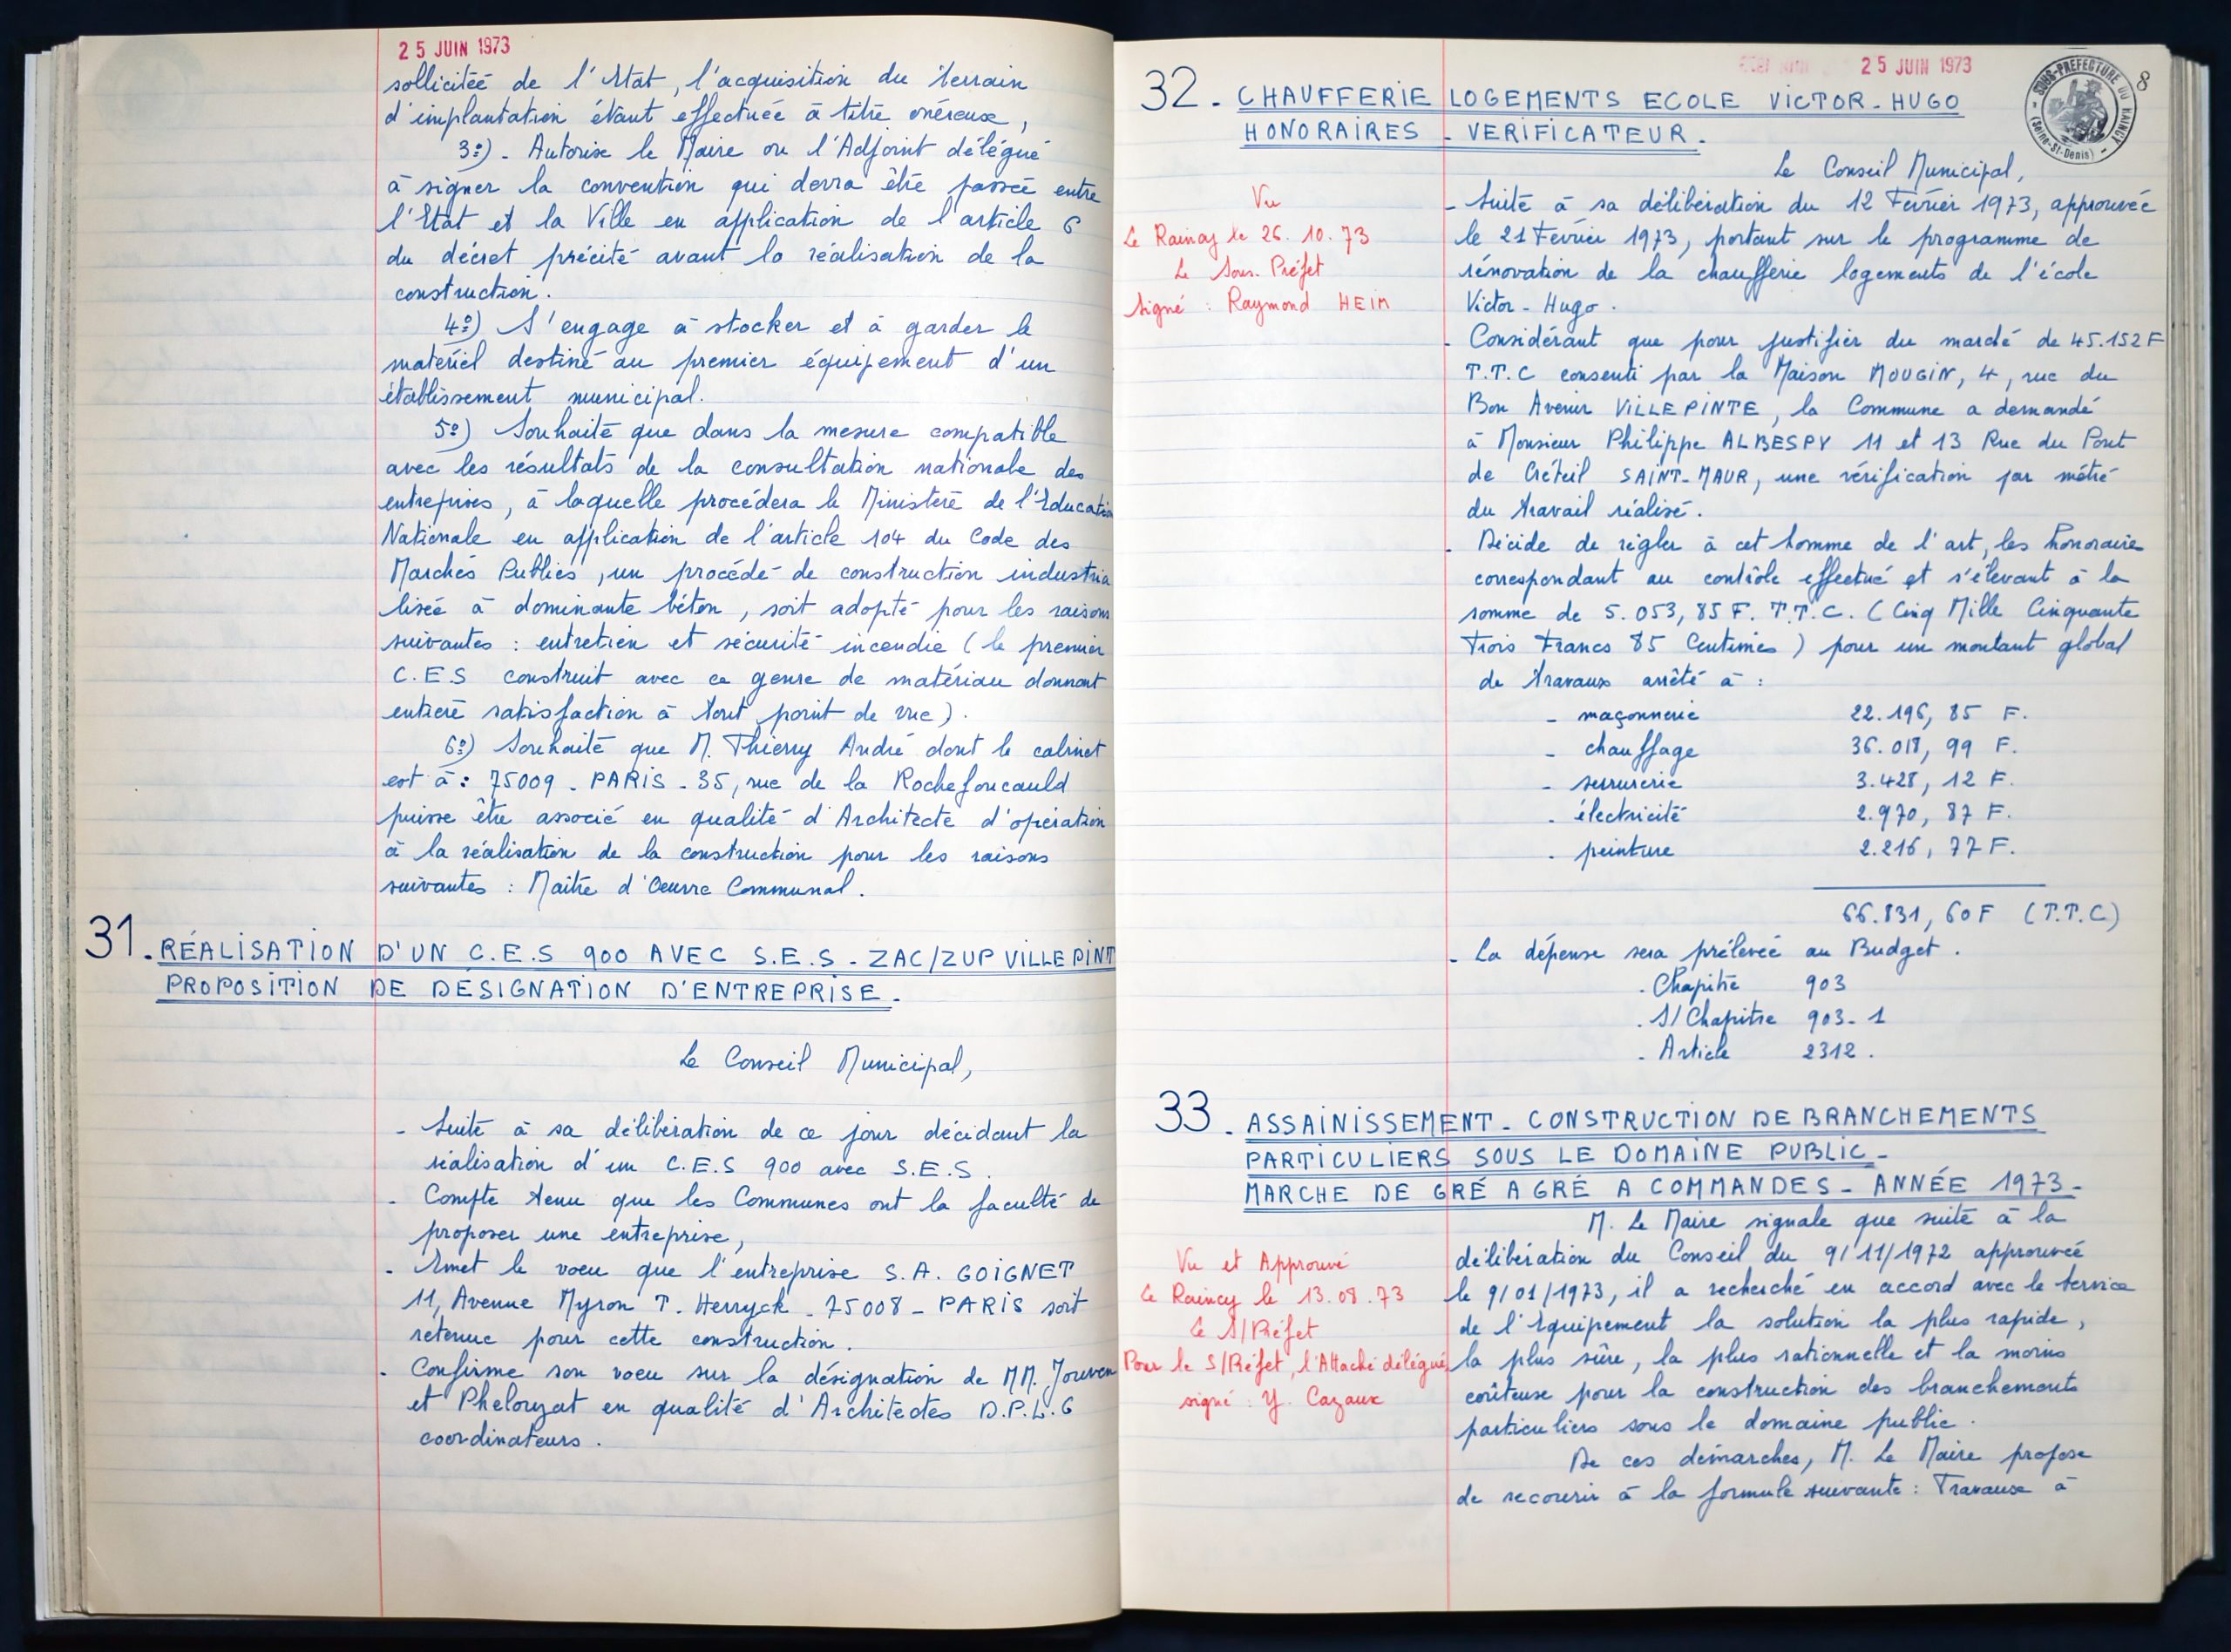 25 JUIN 1973
sollicitée de l'Etat, l'acquisition du terrain
d'implantation étant effectuée à titre onéreux,
3º) - Autorise le Maire ou l'Adjoint délégué
à signer la convention qui devra être passée entre
l'Etat et la Ville en application de l'article 6
du décret précité avant la réalisation de la
construction.
4º) S'engage à stocker et à garder le
matériel destiné au premier équipement d'un
établissement municipal.
5º) Souhaite que dans la mesure compatible
avec les résultats de la consultation nationale des
entreprises, à laquelle procédera le Ministère de l'Education
Nationale en application de l'article 104 du Code des
Marchés Publics, un procédé de construction industria
lisée à dominante béton, soit adopté pour les raisons
suivantes : entretien et sécurité incendie (le premier
C.E.S construit avec ce genre de matériau donnant
entière satisfaction à tout point de vue).
6º) Souhaite que M. Thierry André dont le cabinet
est à : 75009 - PARIS - 35, rue de la Rochefoucauld
puisse être associé en qualité d'Architecte d'opération
à la réalisation de la construction pour les raisons
suivantes : Maître d'Oeuvre Communal.
31. RÉALISATION D'UN C.E.S 900 AVEC S.E.S - ZAC/ZUP VILLEPINT
PROPOSITION DE DÉSIGNATION D'ENTREPRISE -
Le Conseil Municipal,
- Suite à sa délibération de ce jour décidant la
réalisation d'un C.E.S 900 avec S.E.S.
- Compte tenu que les Communes ont la faculté de
proposer une entreprise,
- Emet le voeu que l'entreprise S.A. GOIGNET
11, Avenue Myron T. Herryck - 75008 - PARIS soit
retenue pour cette construction.
- Confirme son voeu sur la désignation de MM. Jouven
et Phelouzat en qualité d'Architectes D.P.L.G
coordinateurs.
25 JUIN 1973
SOUS-PREFECTURE DU RAINCY
(Seine-St-Denis)
8
32. CHAUFFERIE LOGEMENTS ECOLE VICTOR-HUGO
HONORAIRES - VERIFICATEUR.
Le Conseil Municipal,
Vu
Le Raincy le 26.10.73
Le Sous-Préfet
Signé : Raymond HEIM
- Suite à sa délibération du 12 Février 1973, approuvée
le 21 Février 1973, portant sur le programme de
rénovation de la chaufferie logements de l'école
Victor-Hugo.
- Considérant que pour justifier du marché de 45.152 F
T.T.C consenti par la Maison MOUGIN, 4, rue du
Bon Avenir VILLEPINTE, la Commune a demandé
à Monsieur Philippe ALBESPY 11 et 13 Rue du Pont
de Créteil SAINT-MAUR, une vérification par métré
du travail réalisé.
- Décide de régler à cet homme de l'art, les honoraire
correspondant au contrôle effectué et s'élevant à la
somme de 5.053,85 F. T.T.C. (Cinq Mille Cinquante
Trois Francs 85 Centimes) pour un montant global
de travaux arrêté à :
- maçonnerie 22.196,85 F.
- chauffage 36.018,99 F.
- serrurerie 3.428,12 F.
- électricité 2.970,87 F.
- peinture 2.216,77 F.
66.831,60 F (T.T.C)
- La dépense sera prélevée au Budget.
- Chapitre 903
- S/Chapitre 903-1
- Article 2312.
33. ASSAINISSEMENT - CONSTRUCTION DE BRANCHEMENTS
PARTICULIERS SOUS LE DOMAINE PUBLIC -
MARCHE DE GRÉ A GRÉ A COMMANDES - ANNÉE 1973 -
M. Le Maire signale que suite à la
délibération du Conseil du 9/11/1972 approuvée
le 9/01/1973, il a recherché en accord avec le Service
de l'Equipement la solution la plus rapide,
la plus sûre, la plus rationnelle et la moins
coûteuse pour la construction des branchements
particuliers sous le domaine public.
Vu et Approuvé
Le Raincy le 13.08.73
Le S/Préfet
Pour le S/Préfet, l'Attaché délégué
signé : Y. Cazaux
De ces démarches, M. Le Maire propose
de recourir à la formule suivante : Travaux à